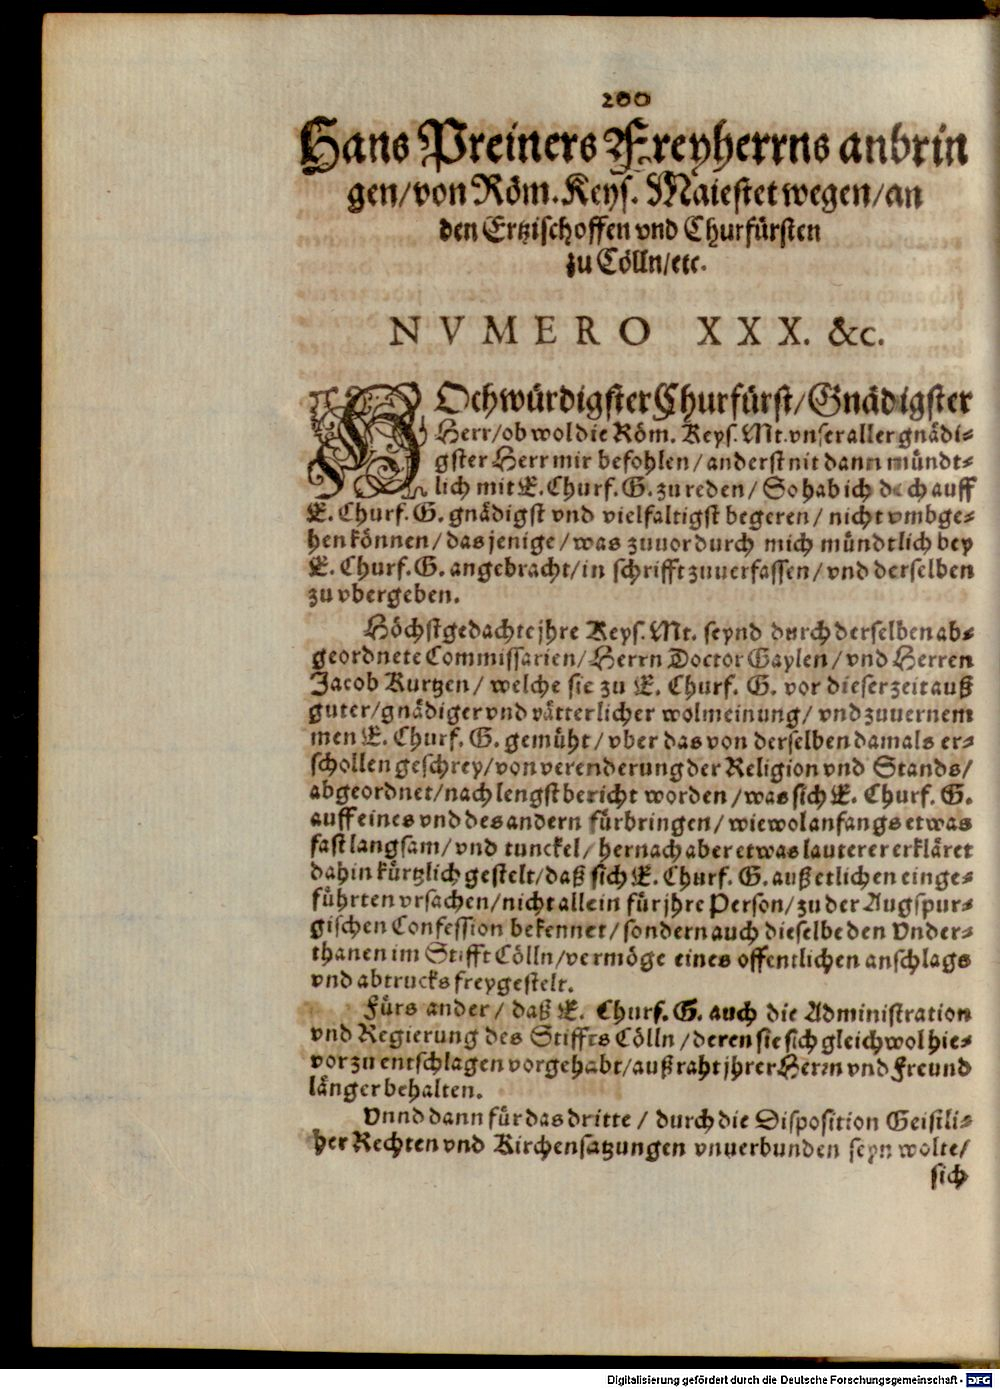 200
Hans Preiners Freyherrns anbrin
gen/von Röm. Keys. Maiestet wegen/an
den Ertzischoffen vnd Churfürsten
zu Cölln/etc.
NVMERO XXX. &c.
HOchwürdigster Churfürst/Gnädigster
Herr/ob wol die Röm. Keys. Mt. vnser aller gnädi-
gster Herr mir befohlen/anderst nit dann mündt-
lich mit E. Churf. G. zu reden/So hab ich doch auff
E. Churf. G. gnädigst vnd vielfaltigst begeren/nicht vmbge-
hen können/das jenige/was zuuor durch mich mündtlich bey
E. Churf. G. angebracht/in schrifft zuuerfassen/vnd derselben
zu vbergeben.
Höchstgedachte jhre Keys. Mt. seynd durch derselben ab-
geordnete Commissarien/Herrn Doctor Gaylen/vnd Herren
Jacob Kurtzen/welche sie zu E. Churf. G. vor dieser zeit auß
guter/gnädiger vnd vätterlicher wolmeinung/vnd zuuernem
men E. Churf. G. gemüht/vber das von derselben damals er-
schollen geschrey/von verenderung der Religion vnd Stands/
abgeordnet/nach lengst bericht worden/was sich E. Churf. G.
auff eines vnd des andern fürbringen/wiewol anfangs etwas
fast langsam/vnd tunckel/hernach aber etwas lauterer erkläret
dahin kürtzlich gestelt/daß sich E. Churf. G. auß etlichen einge-
führten vrsachen/nicht allein für jhre Person/zu der Augspur-
gischen Confession bekennet/sondern auch dieselbe den Vnder-
thanen im Stifft Cölln/vermöge eines offentlichen anschlags
vnd abtrucks freygestelt.
Fürs ander/daß E. Churf. G. auch die Administration
vnd Regierung des Stiffts Cölln/deren sie sich gleichwol hie-
vor zu entschlagen vorgehabt/auß raht jhrer Herrn vnd Freund
länger behalten.
Vnnd dann für das dritte/durch die Disposition Geistli-
her Rechten vnd Kirchensatzungen vnuerbunden seyn wolte/
sich
Digitalisierung gefördert durch die Deutsche Forschungsgemeinschaft - DFG